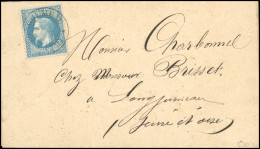 Monsieur Charbonnel
Chez Monsieur Brisset
à Longjumeau
Seine et oise